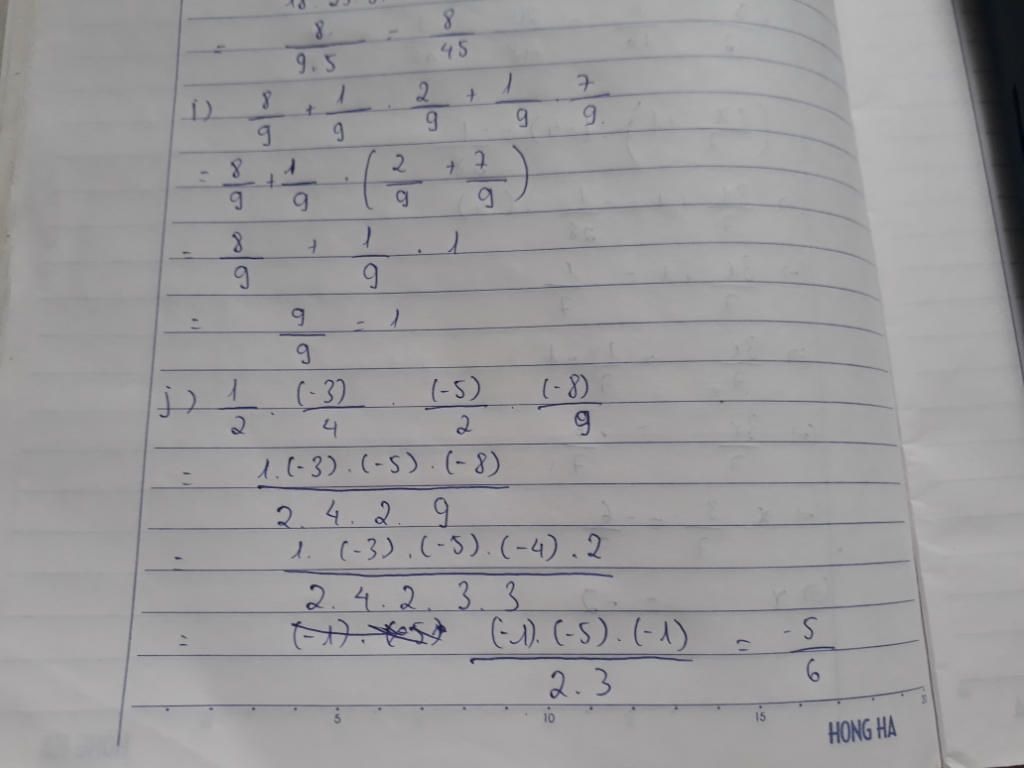 = 8/9.5 = 8/45
i) 8/9 + 1/9 . 2/9 + 1/9 . 7/9
= 8/9 + 1/9 . (2/9 + 7/9)
= 8/9 + 1/9 . 1
= 9/9 = 1
j) 1/2 . (-3)/4 . (-5)/2 . (-8)/9
= 1.(-3).(-5).(-8)/2.4.2.9
= 1.(-3).(-5).(-4).2/2.4.2.3.3
= (-1).(-5).(-1)/2.3 = -5/6
5 10 15
HONG HA